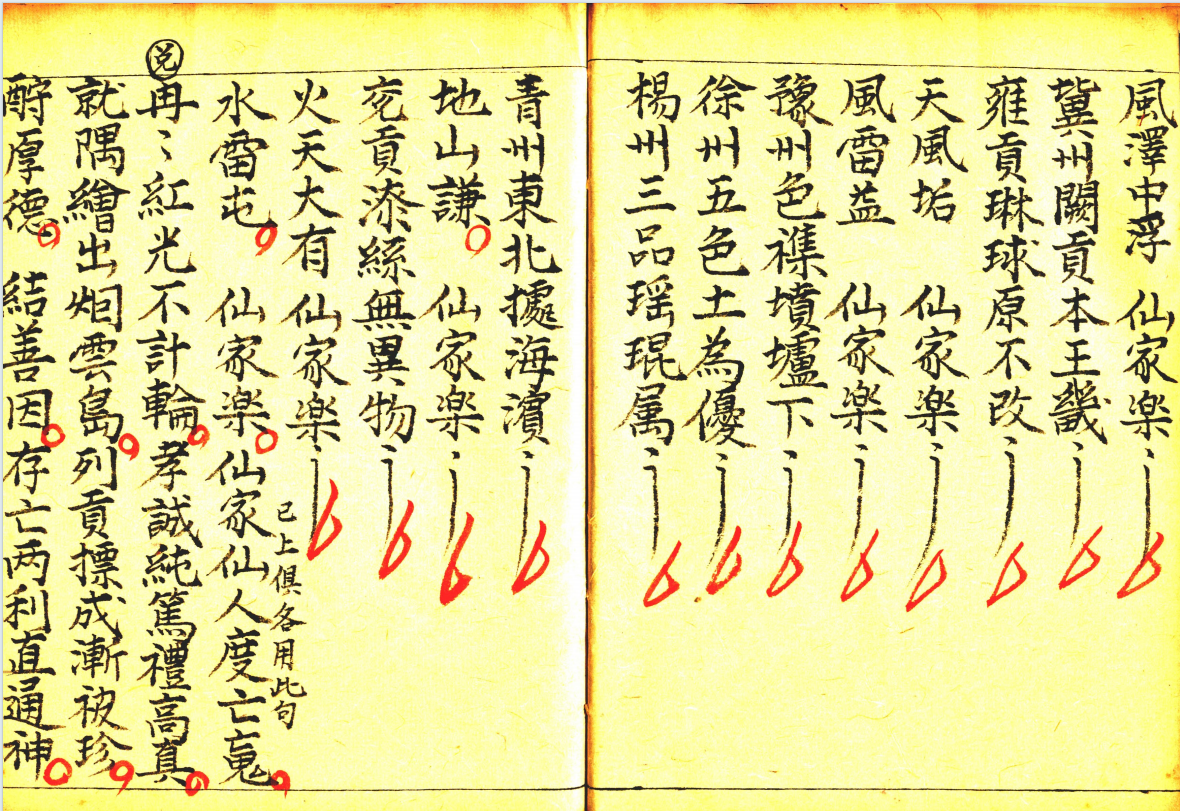 風澤中浮　仙家楽
冀州闕貢本王畿〻
雍貢琳球原不改〻
天風垢　仙家楽〻
風雷益　仙家楽〻
豫州色襍墳壚下〻
徐州五色土為優〻
楊州三品瑶琨属〻
青州東北據海濵〻
地山謙　仙家楽〻
兖貢漆絲無異物〻
火天大有　仙家楽〻
已上俱各用此句
水雷屯　仙家楽仙家仙人度亡䰟
兑
冉〻紅光不計輪孝誠純篤禮高真
就隅繪出烟雲島列貢摽成漸被珍
酧厚德　結善因存亡两利直通神